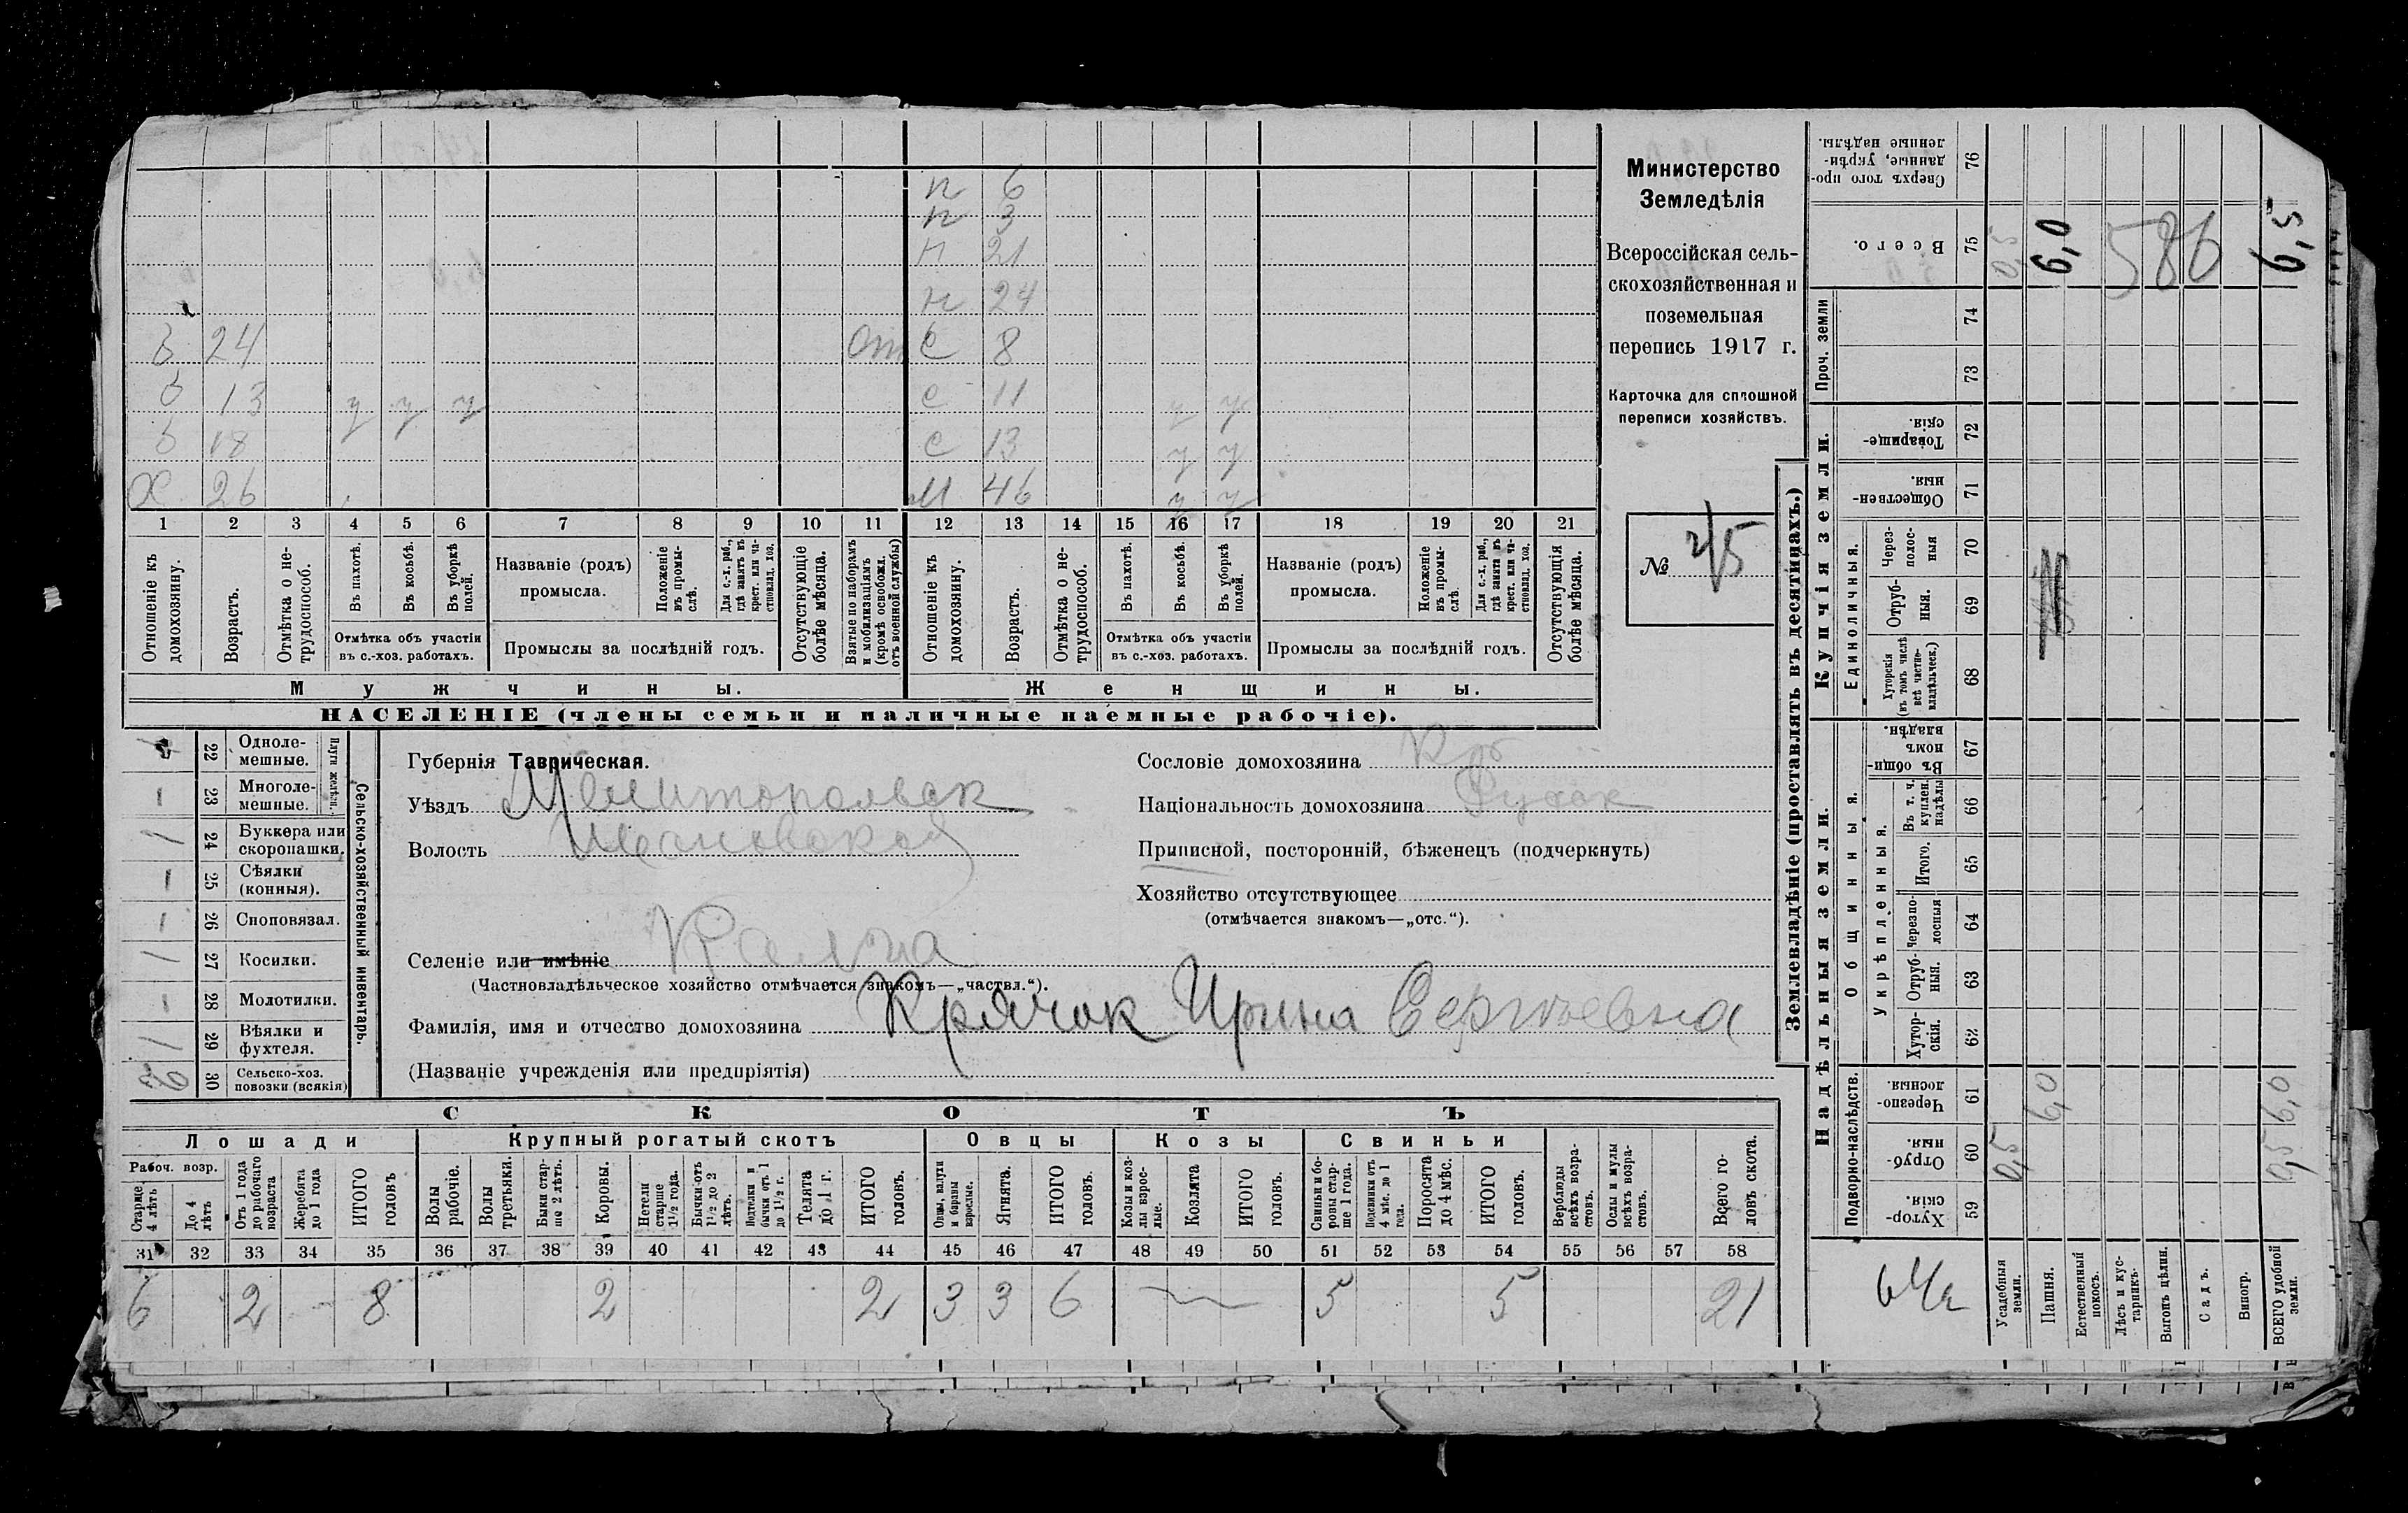 п 6
п 3
п 21
п 24
б 24 От С 8
б 13 у у у с 11 у у
б 18 с 13 у у
Х 26 М 46 у у
1 2 3 4 5 6 7 8 9 10 11 12 13 14 15 16 17 18 19 20 21
Отношеніе къ домохозяину.
Возрастъ.
Отмѣтка о не-
трудоспособ.
Въ пахотѣ.
Въ косьбѣ.
Въ уборкѣ
полей.
Отмѣтка объ участіи
въ с.-хоз. работахъ.
Названіе (родъ)
промысла.
Положеніе
въ промы-
слѣ.
Для с.-х. раб.,
гдѣ занятъ въ
крест. или ча-
стновлад. хоз.
Промыслы за послѣдній годъ.
Отсутствующіе
болѣе мѣсяца.
Взятые по наборамъ
и мобилизаціямъ
(кромѣ освобожд.
отъ военной службы)
Отношеніе къ
домохозяину.
Возрастъ.
Отмѣтка о не-
трудоспособ.
Въ пахотѣ.
Въ косьбѣ.
Въ уборкѣ
полей.
Отмѣтка объ участіи
въ с.-хоз. работахъ.
Названіе (родъ)
промысла.
Положеніе
въ промы-
слѣ.
Для с.-х. раб.,
гдѣ занята въ
крест. или ча-
стновлад. хоз.
Промыслы за послѣдній годъ.
Отсутствующія
болѣе мѣсяца.
Мужчины.
Женщины.
НАСЕЛЕНІЕ (члены семьи и наличные наемные рабочіе).
Министерство
Земледѣлія
Всероссійская сель-
скохозяйственная и
поземельная
перепись 1917 г.
Карточка для сплошной
переписи хозяйствъ.
№
22 Одноле-
мешные.
Плуги желѣзн.
23 Многоле-
мешные.
24 Буккера или
скоропашки.
25 Сѣялки
(конныя).
26 Сноповязал.
27 Косилки.
28 Молотилки.
29 Вѣялки и
фухтеля.
30 Сельско-хоз.
повозки (всякія)
Сельско-хозяйственный инвентарь.
Губернія Таврическая.
Уѣздъ Мелитопольск
Волость
Селеніе или имѣніе
(Частновладѣльческое хозяйство отмѣчается знакомъ—„частвл.“).
Фамилія, имя и отчество домохозяина Крячок Ирина Сергѣевна
(Названіе учрежденія или предпріятія)
Сословіе домохозяина Кр
Національность домохозяина
Приписной, посторонній, бѣженецъ (подчеркнуть)
Хозяйство отсутствующее
(отмѣчается знакомъ—„отс.“).
СКОТЪ
Лошади
Рабоч. возр.
Старше
4 лѣтъ
До 4
лѣтъ
Отъ 1 года
до рабочаго
возраста
Жеребята
до 1 года
ИТОГО
головъ
Крупный рогатый скотъ
Волы
рабочіе.
Волы
третьяки.
Быки стар-
ше 2 лѣтъ.
Коровы.
Нетели
старше
1½ года.
Бычки отъ
1½ до 2
лѣтъ.
Подтелки и
бычки отъ 1
до 1½ г.
Телята
до 1 г.
ИТОГО
головъ.
Овцы
Овцы, валухи
и бараны
взрослые.
Ягнята.
ИТОГО
головъ.
Козы
Козы и коз-
лы взрос-
лые.
Козлята
ИТОГО
головъ.
Свиньи
Свиньи и бо-
ровы стар-
ше 1 года.
Подсвинки отъ
4 мѣс. до 1
года.
Поросята
до 4 мѣс.
ИТОГО
головъ.
Верблюды
всѣхъ возра-
стовъ.
Ослы и мулы
всѣхъ возра-
стовъ.
Всего го-
ловъ скота.
31 32 33 34 35 36 37 38 39 40 41 42 43 44 45 46 47 48 49 50 51 52 53 54 55 56 57 58
6 2 - 8 2 2 3 3 6 5 5 21
Землевладѣніе (проставлять въ десятинахъ.)
Сверхъ того про-
данные, укрѣп-
ленные надѣлы.
76
Всего.
75
0,5
6,0
586
6,5
Проч. земли
74
73
Купчія земли.
Товарище-
скія.
72
Обществен-
ныя.
71
Единоличныя.
Через-
полос-
ныя
70
Отруб-
ныя.
69
Хуторскія
(въ томъ числѣ
всѣ частно-
владѣльческ.)
68
Надѣльныя земли.
Общинныя.
Въ общи-
номъ
владѣн.
67
Укрѣпленныя.
Въ т. ч.
куплен.
надѣлы
66
Итого.
65
Черезпо-
лосныя
64
Отруб-
ныя.
63
Хутор-
скія.
62
Подворно-наслѣдств.
Черезпо-
лосныя.
61
6,0
6,0
Отруб-
ныя.
60
0,5
0,5
Хутор-
скія.
59
Усадебныя
земли.
Пашня.
Естественный
покосъ.
Лѣсъ и кус-
тарникъ.
Выгонъ цѣлин.
Садъ.
Виногр.
ВСЕГО удобной
земли.